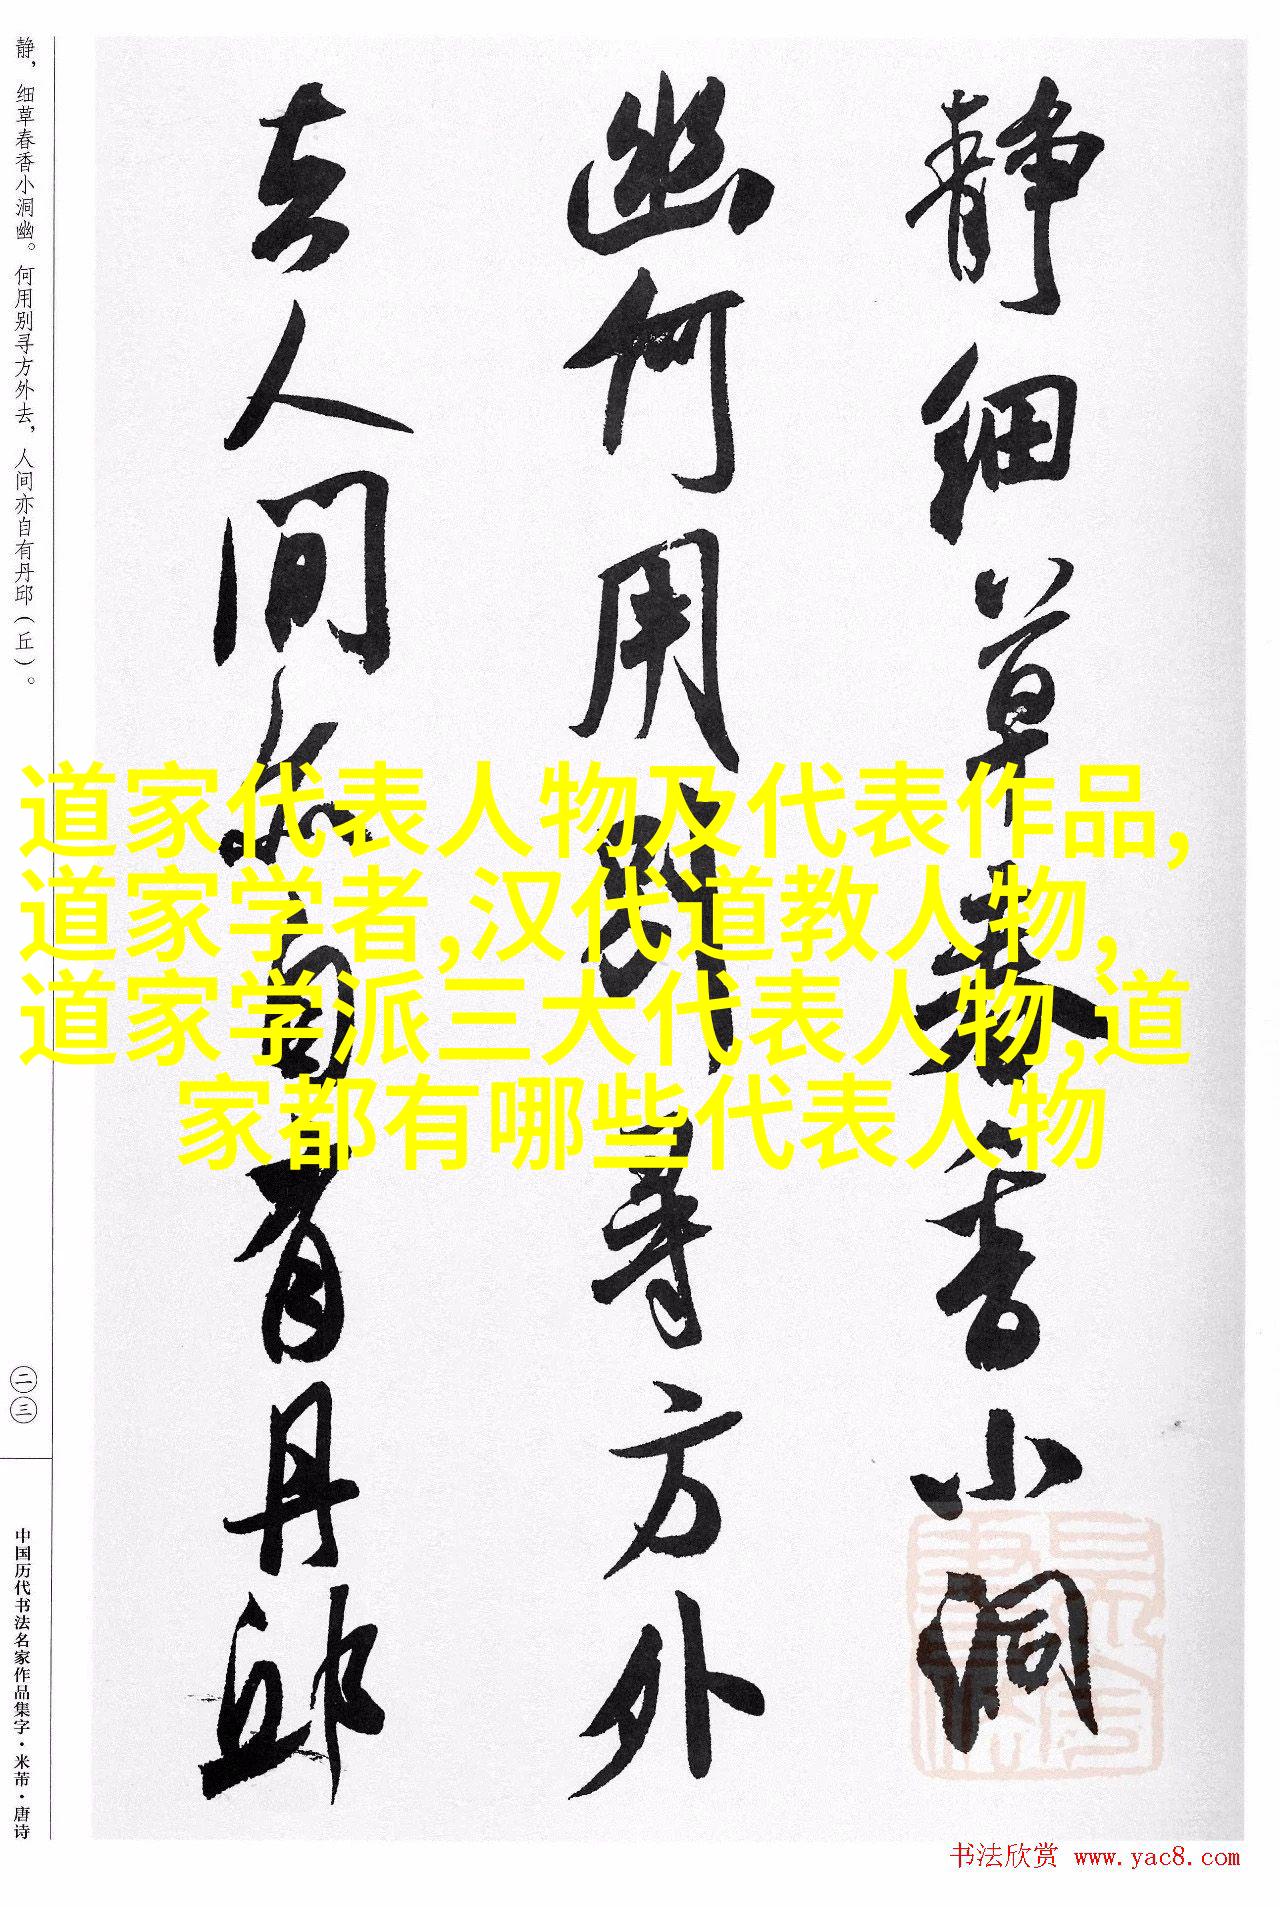 静细草春香小洞
幽何用别寻方外
去人间亦自有丹邱
静，细草春香小洞幽。何用别寻方外去，人间亦自有丹邱（丘）。
二三
中国历代书法名家作品集字·米芾·唐诗
道家代表人物及代表作品,
道家学者,汉代道教人物,
道家学派三大代表人物,道
家都有哪些代表人物
书法欣赏 www.yac8.com